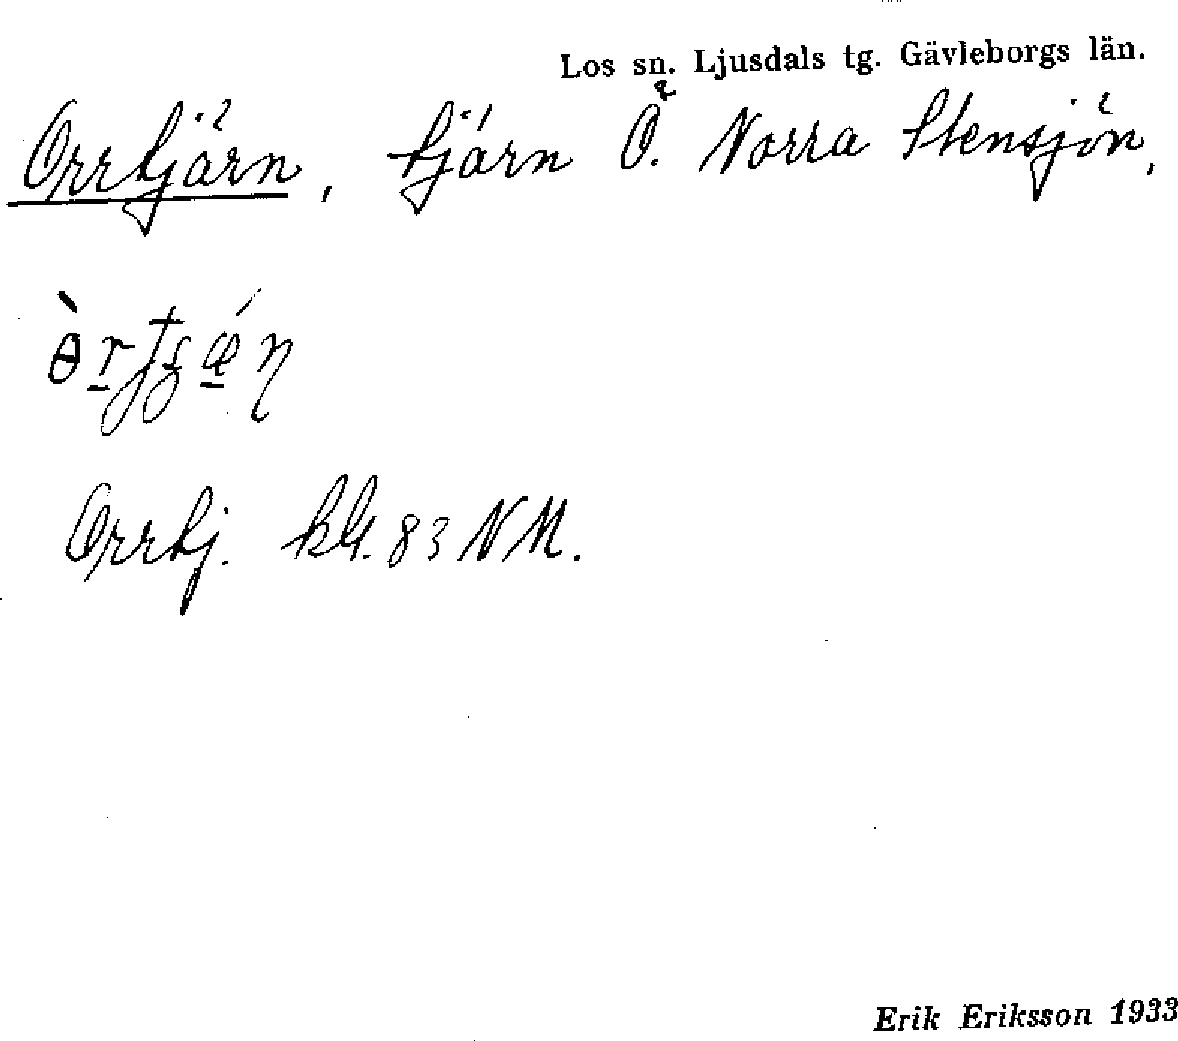 Los sn. Ljusdals tg. Gävleborgs län.
Orrtjärn, tjärn Ö. Norra Stensjön,
Orrtj. kbl. 83 NM.
Erik Eriksson 1933